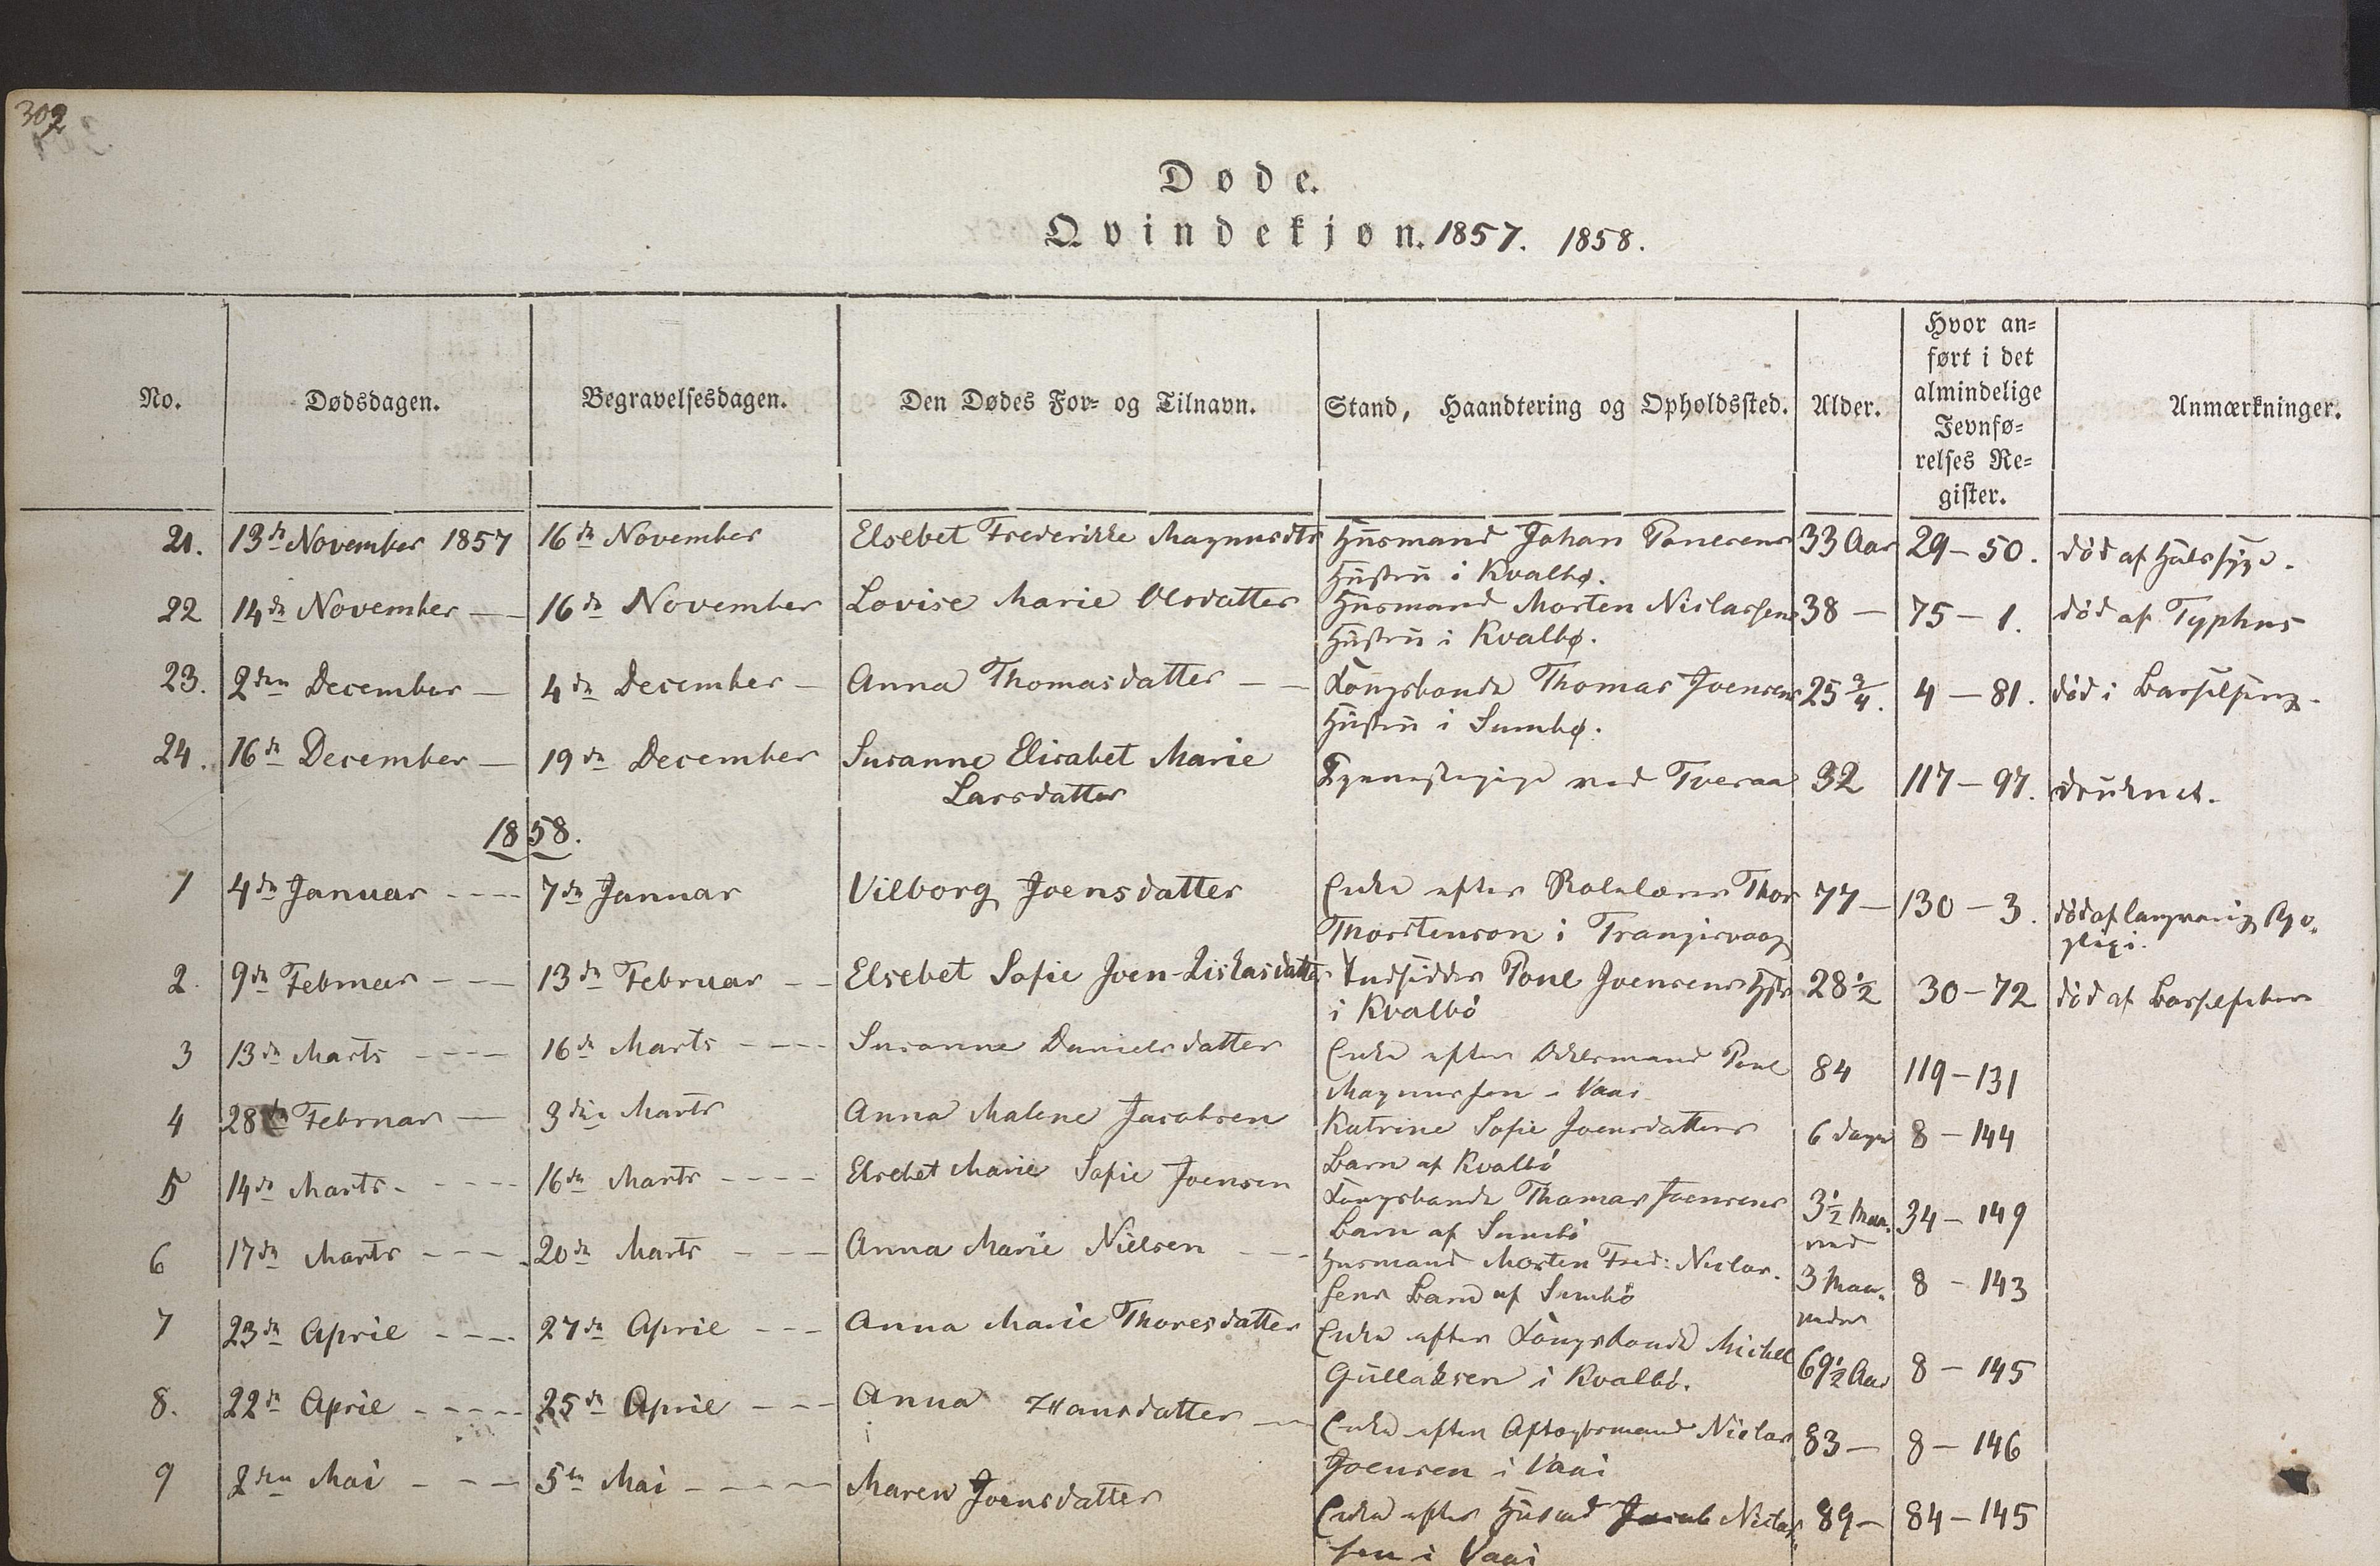 302
Døde.
Qvindekjøn. 1857. 1858.
No. Dødsdagen. Begravelsesdagen. Den Dødes For- og Tilnavn. Stand, Haandtering og Opholdssted. Alder. Hvor an-
ført i det
almindelige
Jevnfø-
relses Re-
gister. Anmærkninger.
21. 13de November 1857 16de November Elsebet Frederikke Magnusdtr Husmand Johan Poulsens 33 Aar 29 - 50. død af Halssyge.
Hustru i Kvalbø.
22 14de November — 16de November Lovise Marie Olsdatter Husmand Morten Niclassens 38 — 75 - 1. død af Typhus
Hustru i Kvalbø.
23. 2den December — 4de December — Anna Thomasdatter — — Kongsbonde Thomas Joensens 25 3/4. 4 - 81. død i Barselseng.
Hustru i Sumbø.
24. 16de December — 19de December Susanne Elisabet Marie
Larsdatter Tjenestepige ved Tveraa 32 117 - 97. druknet.
1858.
1 4de Januar - - - - 7de Januar Vilborg Joensdatter Enke efter Thor 77 — 130 - 3. død af langvarig
Thorstenson i Trangisvaag
2. 9de Februar - - — 13de Februar - - Elsebet Sofie Joen-Liskasdatter Indsidder Poul Joensens Hstr 28 1/2 30 - 72 død af Barselfeber
i Kvalbö
3 13de Marts - - - — 16de Marts - - - - Susanne Danielsdatter Enke efter Poul 84 119 - 131
Magnussen i Vaai
4 28de Februar — 3die Marts Anna Malene Jacobsen Katrine Sofie Joensdatters 6 Dage 8 - 144
Barn af Kvalbö
5 14de Marts - - - - - 16de Marts - - - - Elsebet Marie Sofie Joensen Kongsbonde Thomas Joensens 3 1/2 Maa- 34 - 149
Barn af Sumbö ned
6 17de Marts - - - - 20de Marts - - — Anna Marie Nielsen - - - Husmand Morten Fred: Niclas- 3 Maa- 8 - 143
sens Barn af Sumbö neder
7 23de April - - - - 27de April - - — Anna Marie Thoresdatter Enke efter Kongsbonde Michel 69 1/2 Aar 8 - 145
Gullaksen i Kvalbö.
8. 22de April - - - - - 25de April - - — Anna Hansdatter — Enke efter Aftægtsmand Niclas 83 — 8 - 146
Joensen i Vaai
9 2den Mai - - — 5te Mai - - - — Maren Joensdatter Enke efter Jacob Niclas- 89 — 84 - 145
sen i Vaai